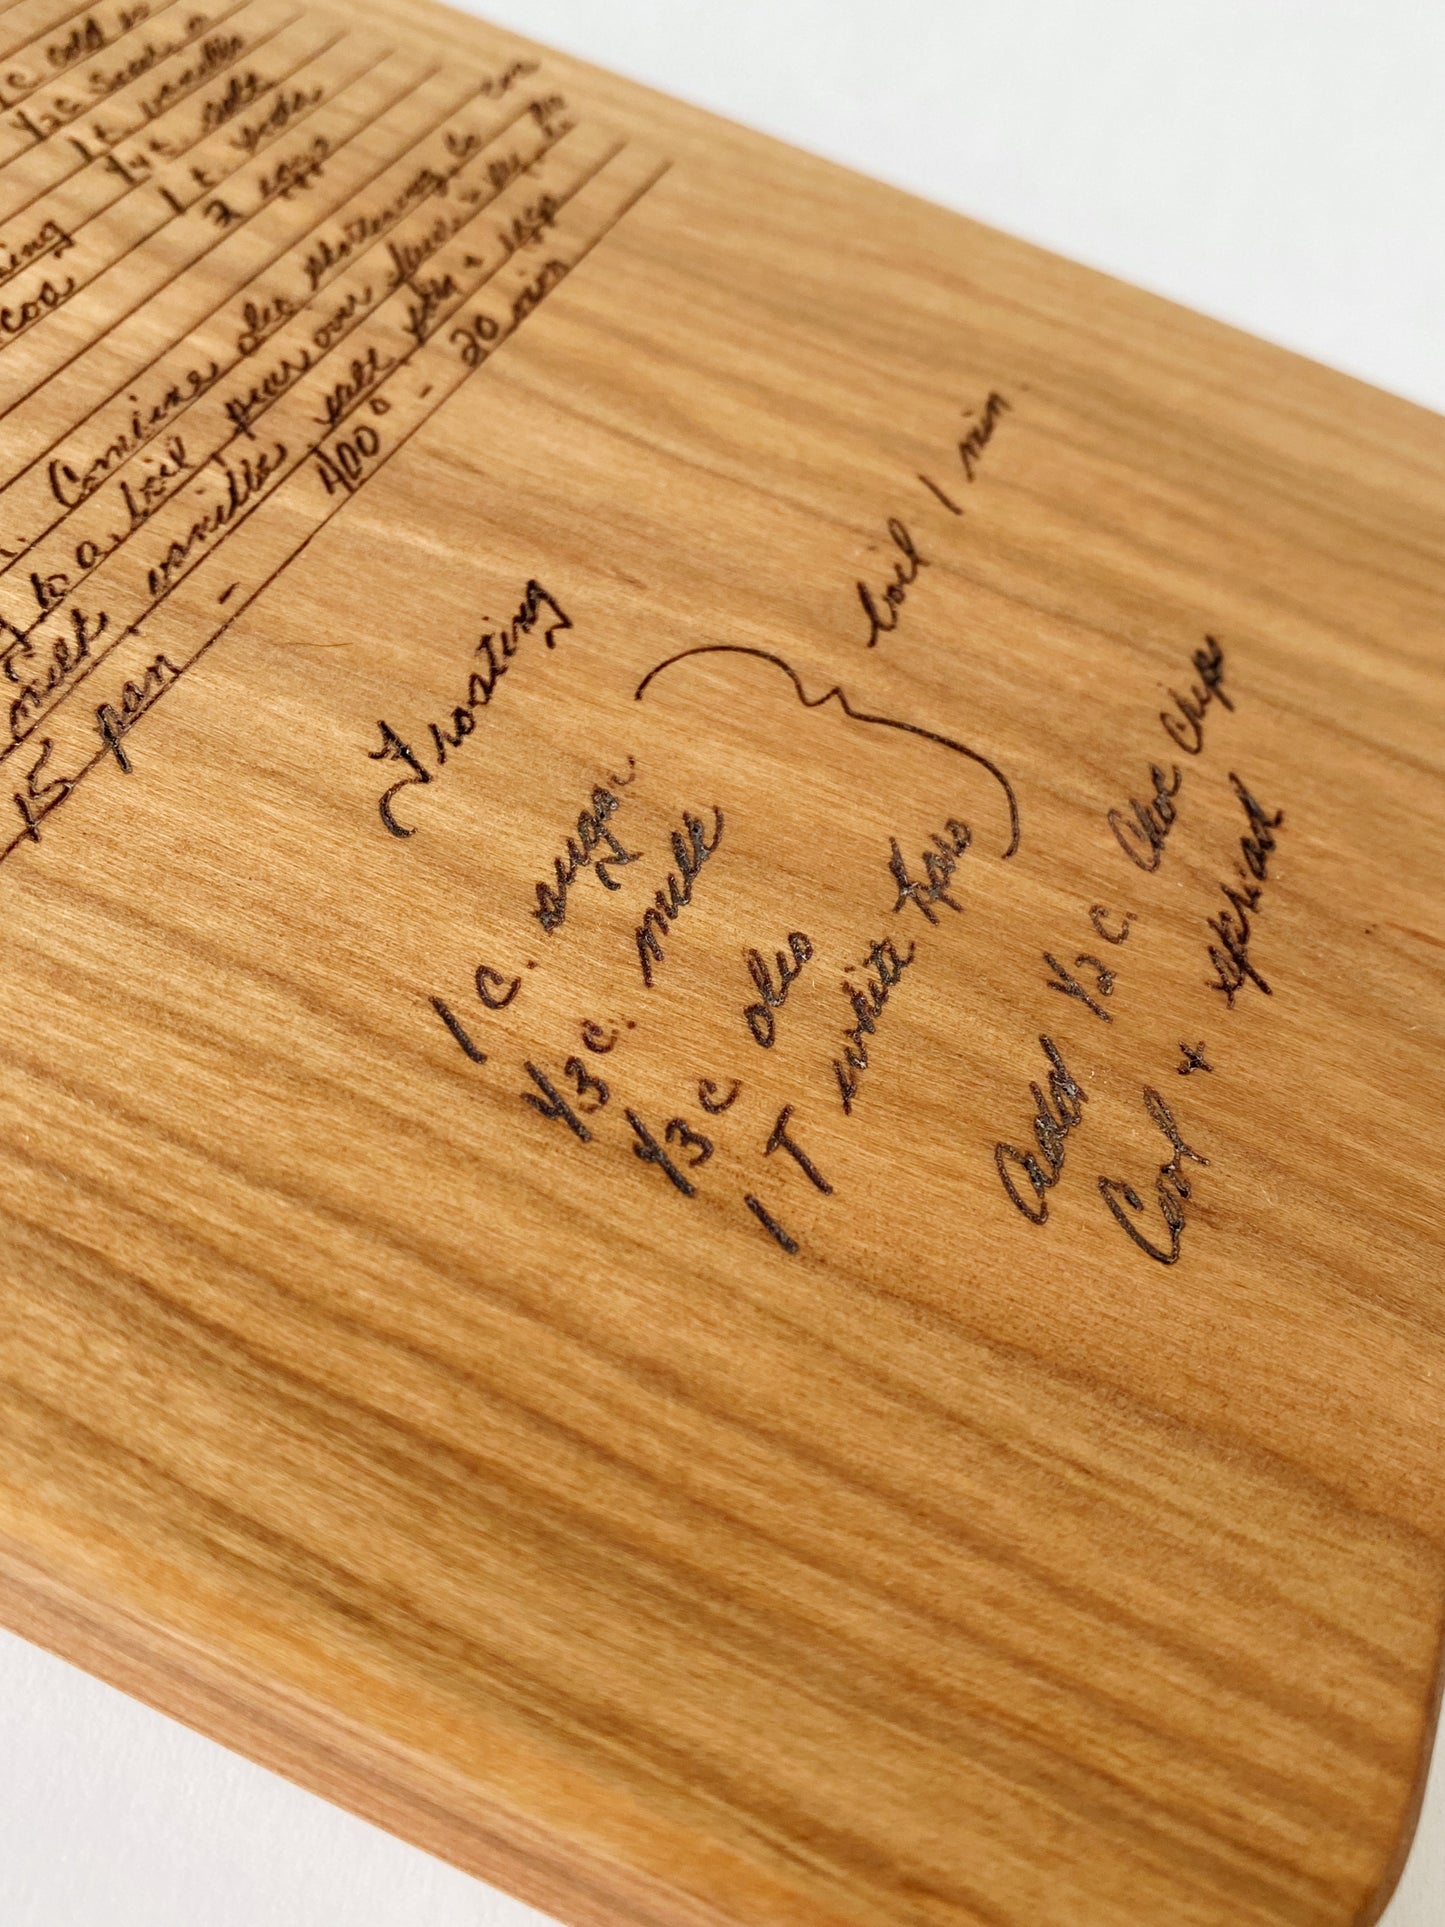 1/2 c
1 t vanilla
1/4 t salt
1 t soda
2 eggs
Comine oleo shortening
to a boil pour over
milk, vanilla salt soda + eggs
15 pan - 400° - 20 min
Frosting
1 c. sugar
1/3 c. milk
1/3 c oleo
1 T white Karo
boil 1 min.
Add 1/2 c. choc chips
Cool + spread